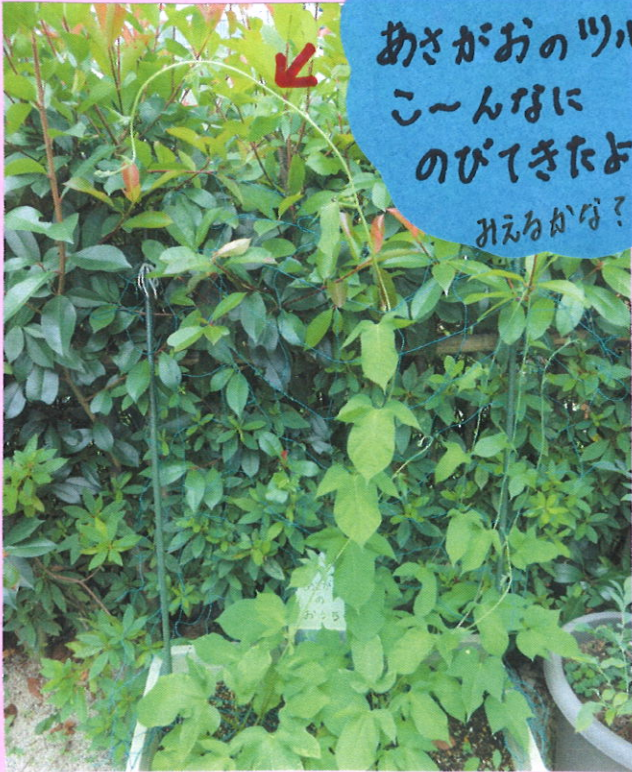 あさがおのツル
こ〜んなに
のびてきたよ
みえるかな?